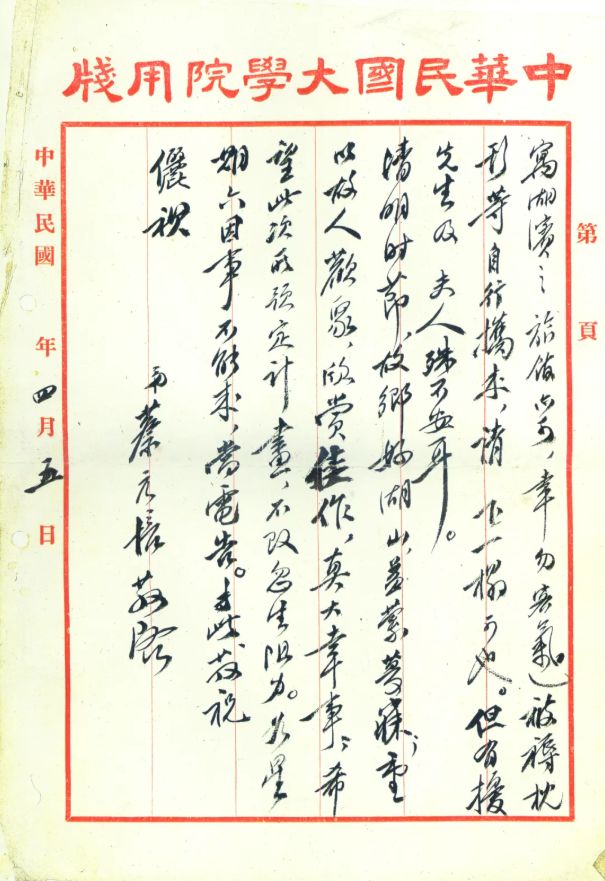 中華民國大學院用牋
第 頁
寓湖濱之旅館亦可，幸勿客氣）被褥枕
等自行攜來，請下一榻可也。但有擾
先生及 夫人殊不安耳。
清明时節，故鄉好湖山，益縈夢寐；重
以故人歡聚，欣賞佳作，真大幸事；希
望此次所預定計畫，不致忽生阻力。如星
期六因事不能來，當電告。專此敬祝
儷
弟蔡元培敬啓
中華民國 年四月五日